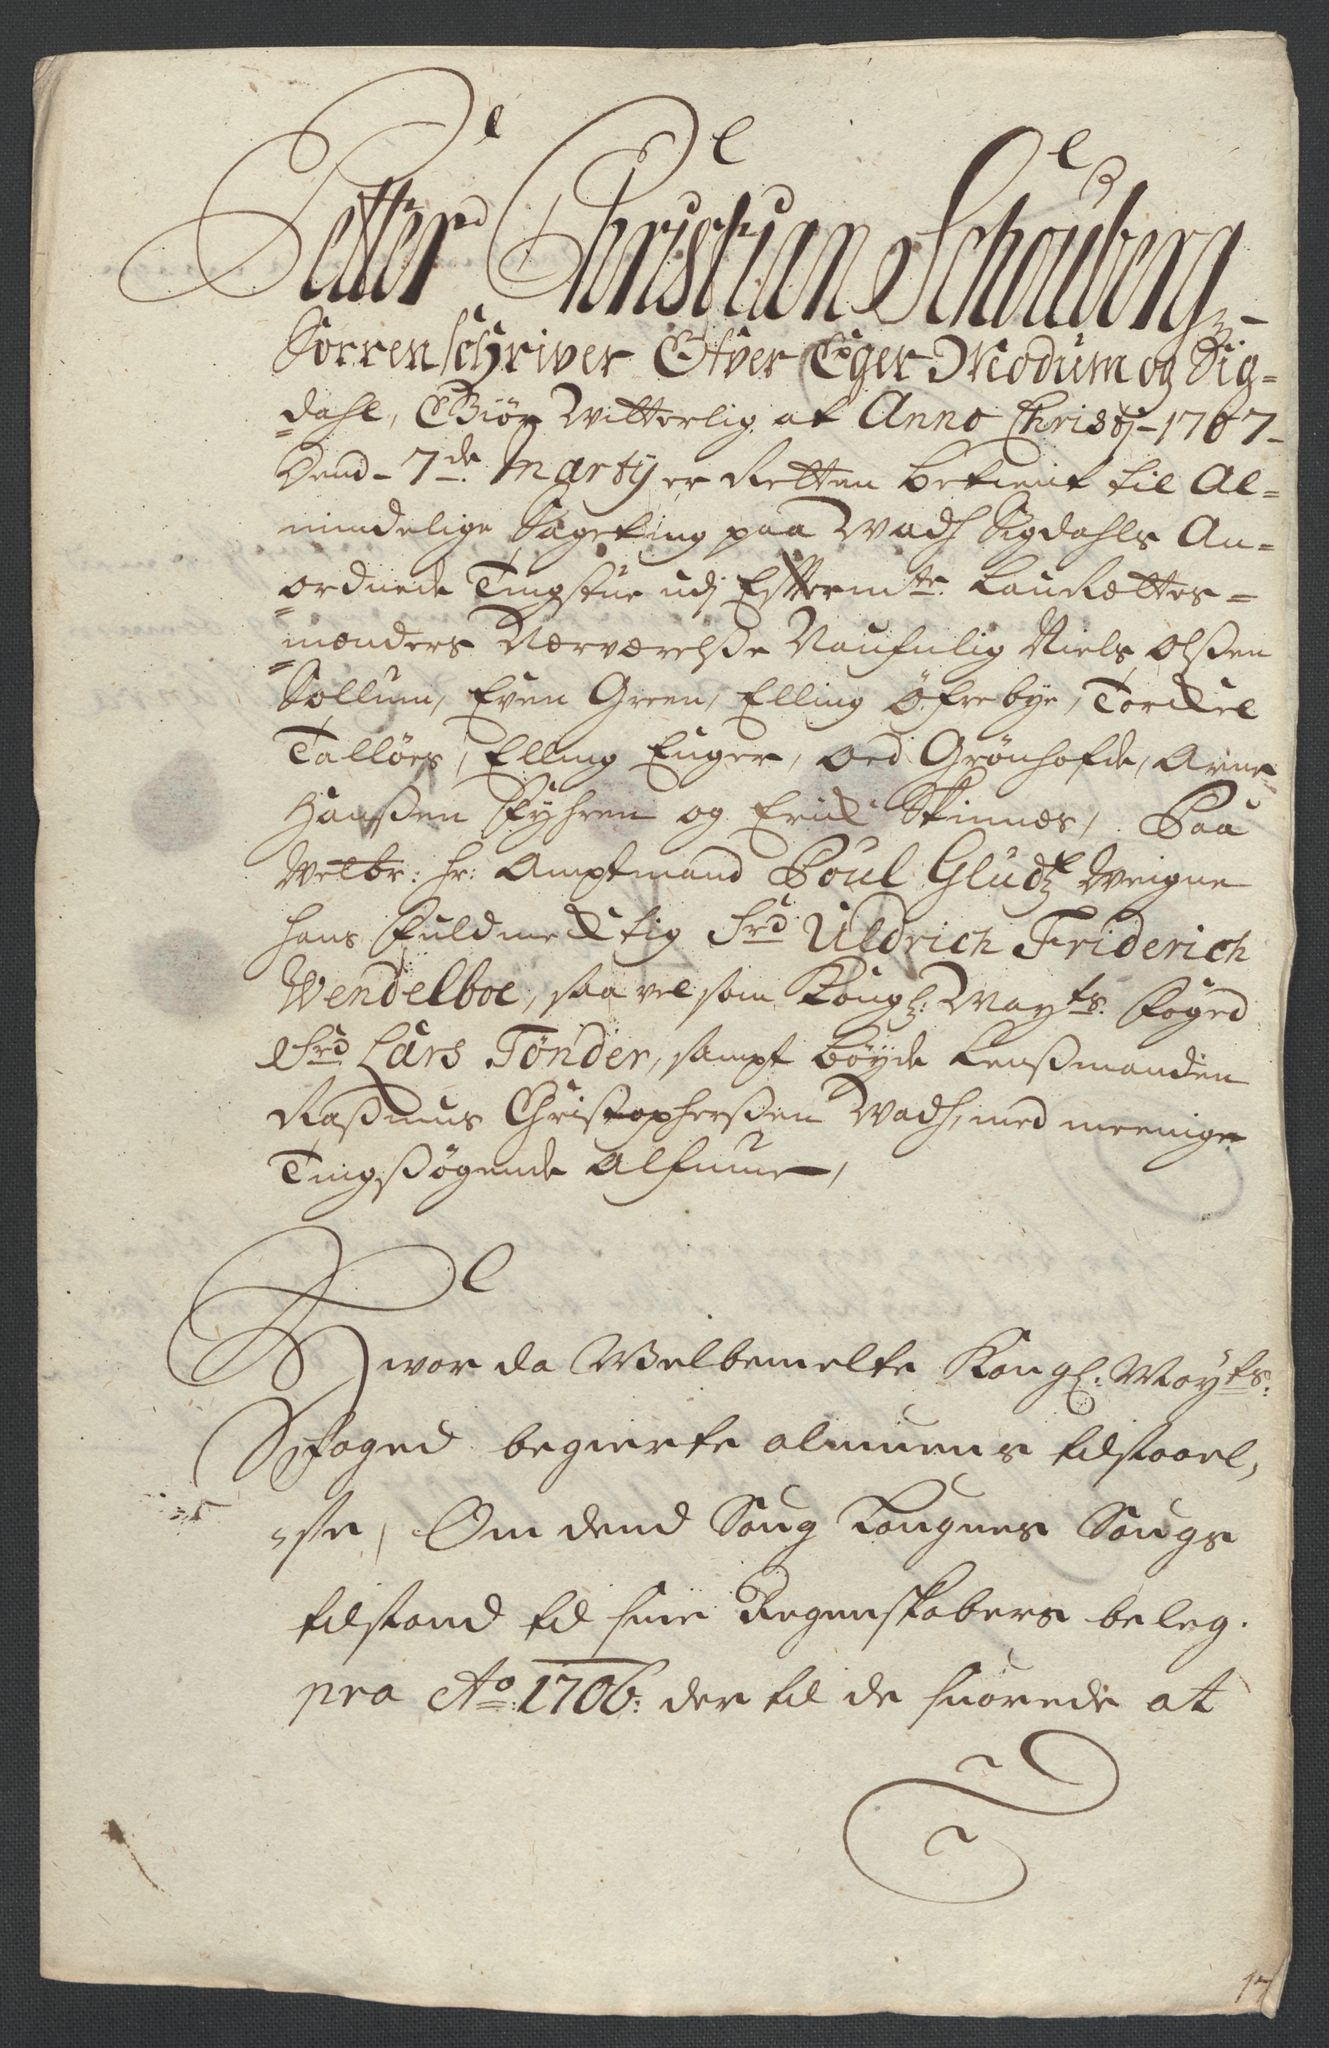 Petter Christian Schouberg
Sorrenschriver Ofver Eger Modum og Sig=
dahl, Giör Witterlig at Anno Christj 1707
Dend 7de Martij er Retten betient til Al=
mindelige Sageting paa Wadh Sigdahls An=
ordnede Tingstue udj Efftermte Laurettes=
mænders Nærværelsse Naufnlig Niels Olssen
Sollum, Even Green, Elling Öfrebye, Torckel
Tallöes, Elling Enger, Ord Grönhofde, Arne
Hanssen Fyhren og Erick Skinnes, Paa
Welbr: Hr: Amptmand Poul Gludtz Weigne
hans Fuldmecktig Srd Uldrich Friderich
Wendelboe, saa vel som Kongl: Mayts: Foged
Srd Lars Tønder, sampt böyde Lenssmanden
Rassmus Christopherssen Wadh, med meenige
Tingssögende Almue,
Hvor da Welbemelte Kongl: Mayts:
Foged begierte almuens tilstaael,
se, Om dend Saug Laugnes Saugs
tilstand til sine Regenskabers beleg.
pro Ao: 1706: der til de suarede at
17